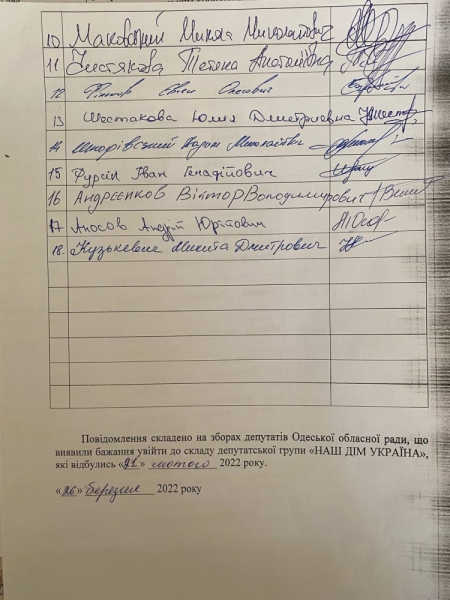 10 Маковський Микола Миколайович
11 Чистякова Тетяна Анатоліївна
12 Євген Олегович
13 Шестакова Юлия Дмитриевна
14 Миколайович
15 Фурсін Іван Генадійович
16 Андрєєнков Віктор Володимирович
17 Аносов Андрій Юрійович
18. Кузькевич Микита Дмитрович
Повідомлення складено на зборах депутатів Одеської обласної ради, що
виявили бажання увійти до складу депутатської групи «НАШ ДІМ УКРАЇНА»,
які відбулись «21» лютого 2022 року.
«26» березня 2022 року